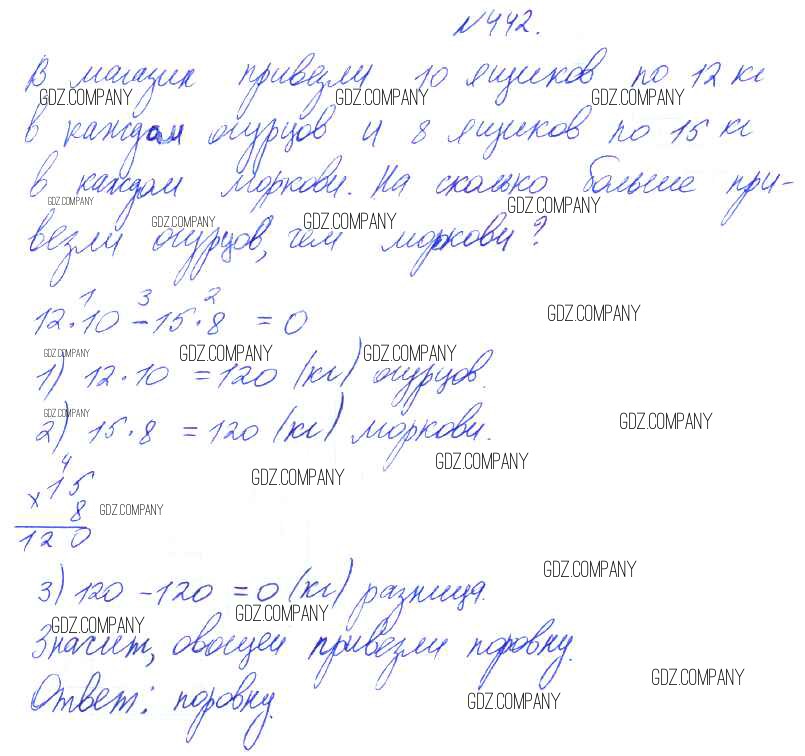 №442.
В магазин привезли 10 ящиков по 12 кг
GDZ.COMPANY GDZ.COMPANY GDZ.COMPANY
в каждом огурцов и 8 ящиков по 15 кг
в каждом моркови. На сколько больше при-
GDZ.COMPANY GDZ.COMPANY
GDZ.COMPANY GDZ.COMPANY
везли огурцов, чем моркови?
1 3 2
12·10 - 15·8 = 0
GDZ.COMPANY
GDZ.COMPANY GDZ.COMPANY GDZ.COMPANY
1) 12·10 = 120 (кг) огурцов.
GDZ.COMPANY GDZ.COMPANY
2) 15·8 = 120 (кг) моркови.
GDZ.COMPANY
4
GDZ.COMPANY
x 15
8 GDZ.COMPANY
120
GDZ.COMPANY
3) 120 - 120 = 0 (кг) разница.
GDZ.COMPANY GDZ.COMPANY
Значит, овощей привезли поровну.
GDZ.COMPANY
Ответ: поровну.
GDZ.COMPANY